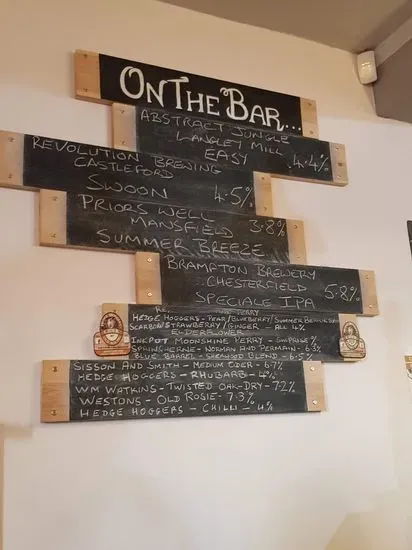 ON THE BAR...
ABSTRACT JUNGLE
LANGLEY MILL
EASY 4.4%
REVOLUTION BREWING
CASTLEFORD
SWOON 4.5%
PRIORS WELL
MANSFIELD 3.8%
SUMMER BREEZE
BRAMPTON BREWERY
CHESTERFIELD
SPECIALE IPA 5.8%
HEDGE HOGGERS - PEAR/BLUEBERRY/SUMMER BERRY
STRAWBERRY/GINGER - ALL 4%
ELDERFLOWER
INKPOT MOONSHINE PERRY -
NORMAN AND PERMAIN - 6.3%
BLUE BARREL - BLEND - 6.5%
SISSON AND SMITH - MEDIUM CIDER - 6.7%
HEDGE HOGGERS - RHUBARB - 4%
WM WATKINS - TWISTED OAK - DRY - 7.2%
WESTONS - OLD ROSIE - 7.3%
HEDGE HOGGERS - CHILLI - 4%